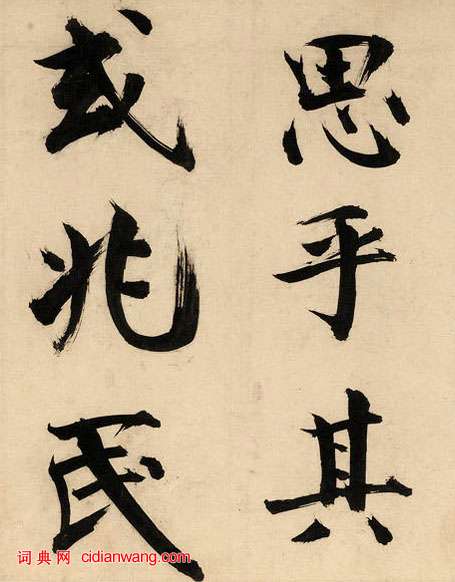 思乎其
或兆民
词典网 cidianwang.com